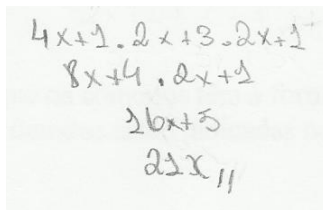 4x+1.2x+3.2x+1
8x+4.2x+1
16x+5
21x,,